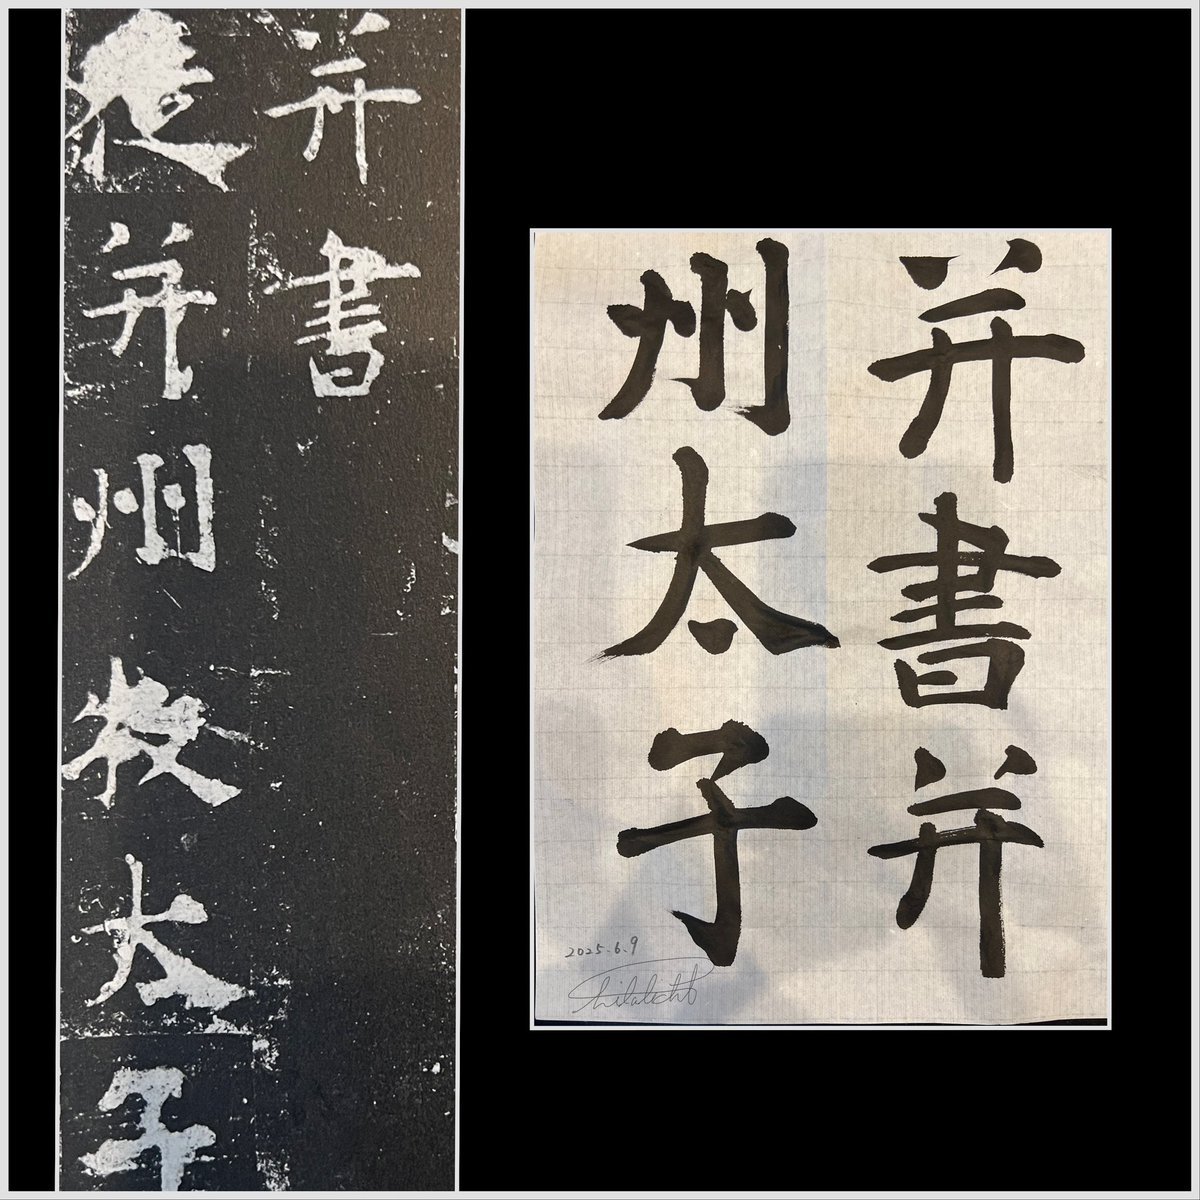 并書
徒并州牧太子
并書并
州太子
2025.6.9